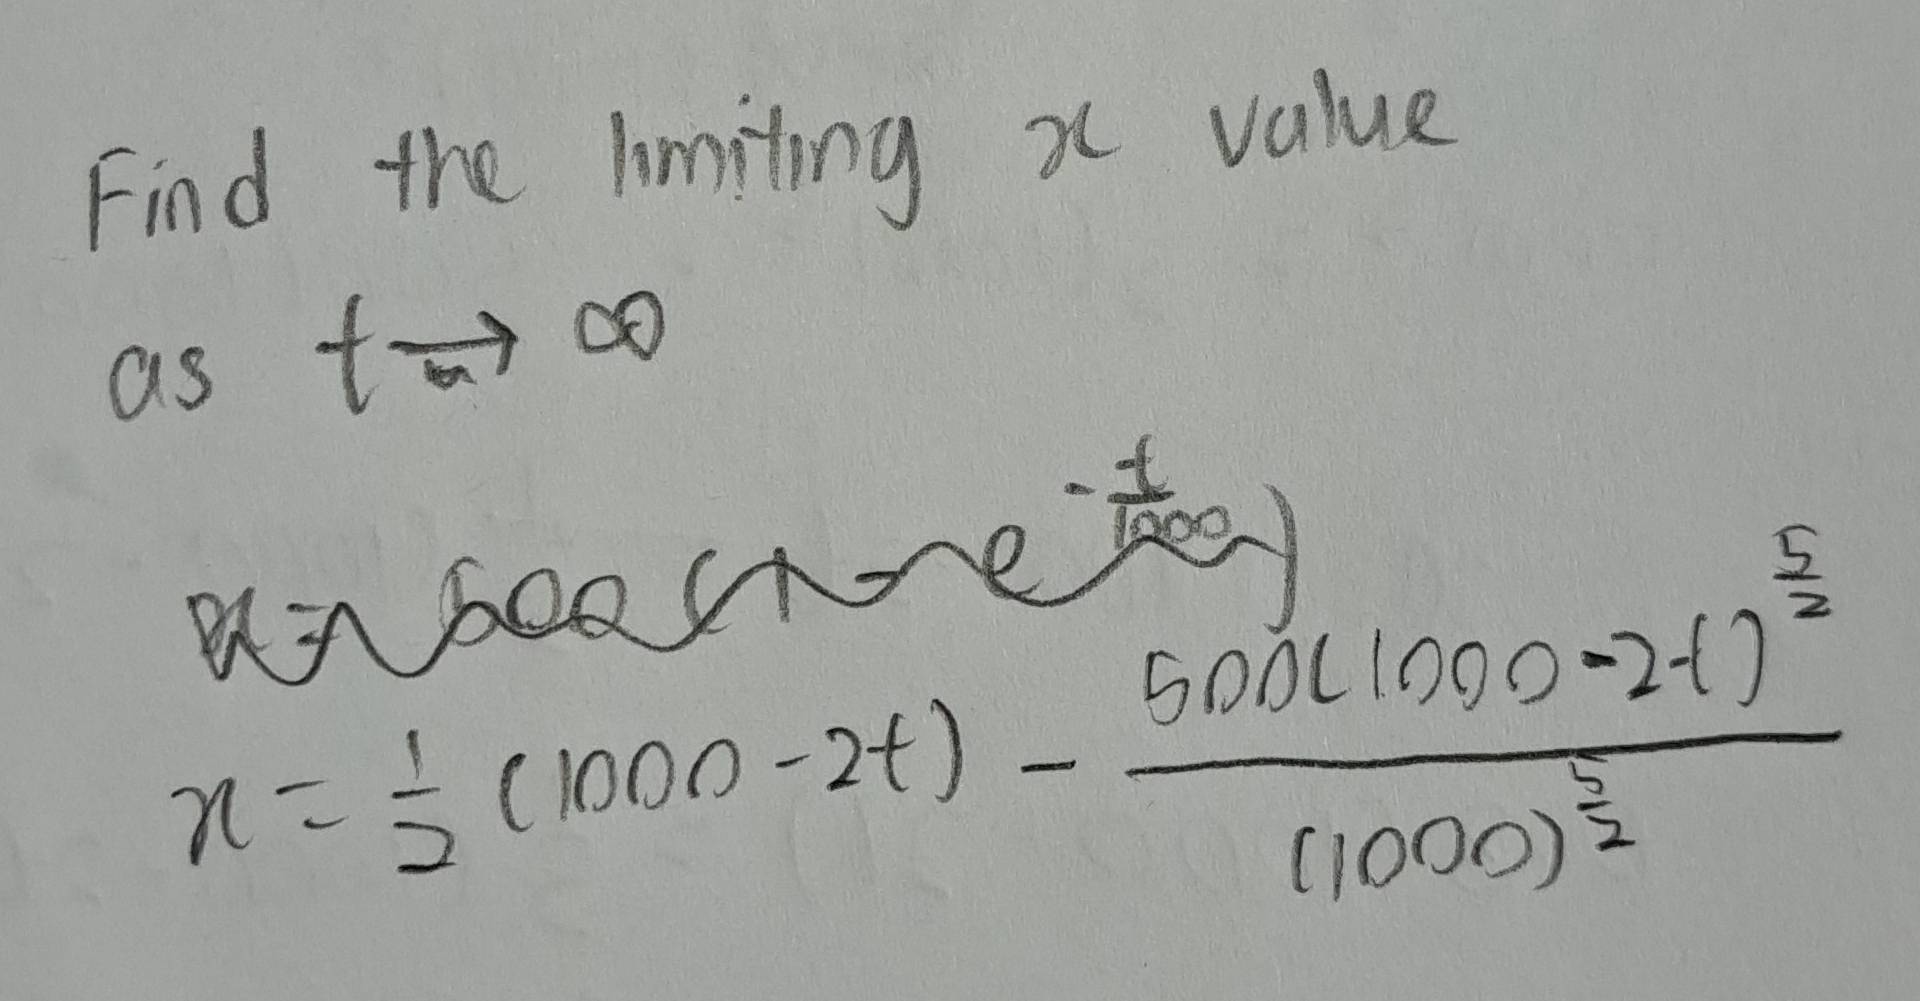 Find the limiting x value
as t → ∞
x = 500 (1 - e^(-t/1000))
x = 1/2 (1000 - 2t) - 500(1000 - 2t)^(5/2) / (1000)^(5/2)